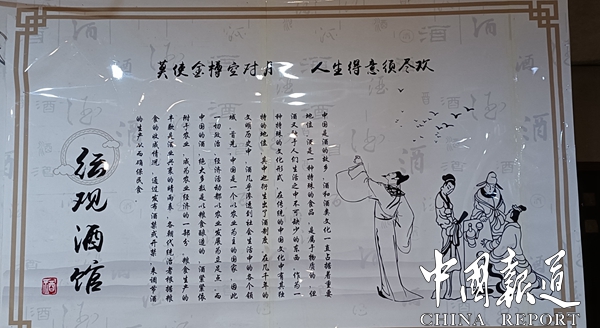 莫使金樽空对月 人生得意须尽欢
中国是酒的故乡，酒和酒类文化一直占据着重要
地位，酒是一种特殊的食品，是属于物质的，但
酒又于人们生活之中不可缺少的东西，作为一
种特殊的文化形式，在传统的中国文化中有其独
特的地位，其中也衍生出了酒制度。在几千年的
文明历史中，酒几乎渗透到社会生活中的各个领
域。首先，中国是一个以农业为主的国家，因此
一切政治、经济活动都以农业发展为立足点。而
中国的酒，绝大多数是以粮食酿造的，酒紧紧依
附于农业，成为农业经济的一部分。粮食生产的
丰歉是酒业兴衰的晴雨表，各朝代统治者根据粮
食的收成情况，通过发布酒禁或开禁，来调节酒
的生产，从而确保民食。
酒馆
中國報道
CHINA REPORT